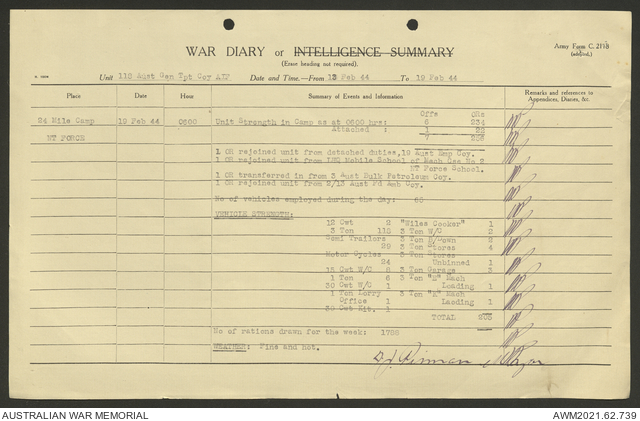 WAR DIARY OR INTELLIGENCE SUMMARY
(Erase heading not required).
Army Form C. 2118
Unit 118 Aust Gen Tpt Coy AIF Date and Time—From 13 Feb 44 To 19 Feb 44
Place Date Hour Summary of Events and Information Remarks and references to Appendices, Diaries, &c.
24 Mile Camp 19 Feb 44 0600 Unit Strength in Camp as at 0600 hrs:
Offs ORs
6 234
Attached : 1 22
7 256
NT FORCE
1 OR rejoined unit from detached duties, 19 Aust Emp Coy.
1 OR rejoined unit from LHQ Mobile School of Mech Cse No 2
NT Force School.
1 OR transferred in from 3 Aust Bulk Petroleum Coy.
1 OR rejoined unit from 2/13 Aust Fd Amb Coy.
No of vehicles employed during the day: 68
VEHICLE STRENGTH:
12 Cwt 2 "Wiles Cooker" 1
3 Ton 118 3 Ton W/C 2
Semi Trailers 3 Ton B/Down 2
29 3 Ton Stores 4
Motor Cycles 3 Ton Stores
24 Unbinned 1
15 Cwt W/C 6 3 Ton Garage 3
1 Ton 6 3 Ton "Z" Mach
30 Cwt W/C 1 Loading 1
1 Ton Lorry 3 Ton "A" Mach
Office 1 Loading 1
30 Cwt Kit. 1
TOTAL 205
No of rations drawn for the week: 1788
WEATHER: Fine and hot.
AUSTRALIAN WAR MEMORIAL
AWM2021.62.739